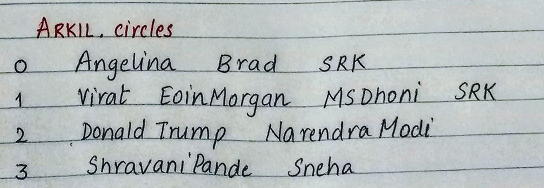 ARKIL. circles
0 Angelina Brad SRK
1 Virat EoinMorgan MSDhoni SRK
2 Donald Trump Narendra Modi
3 Shravani Pande Sneha